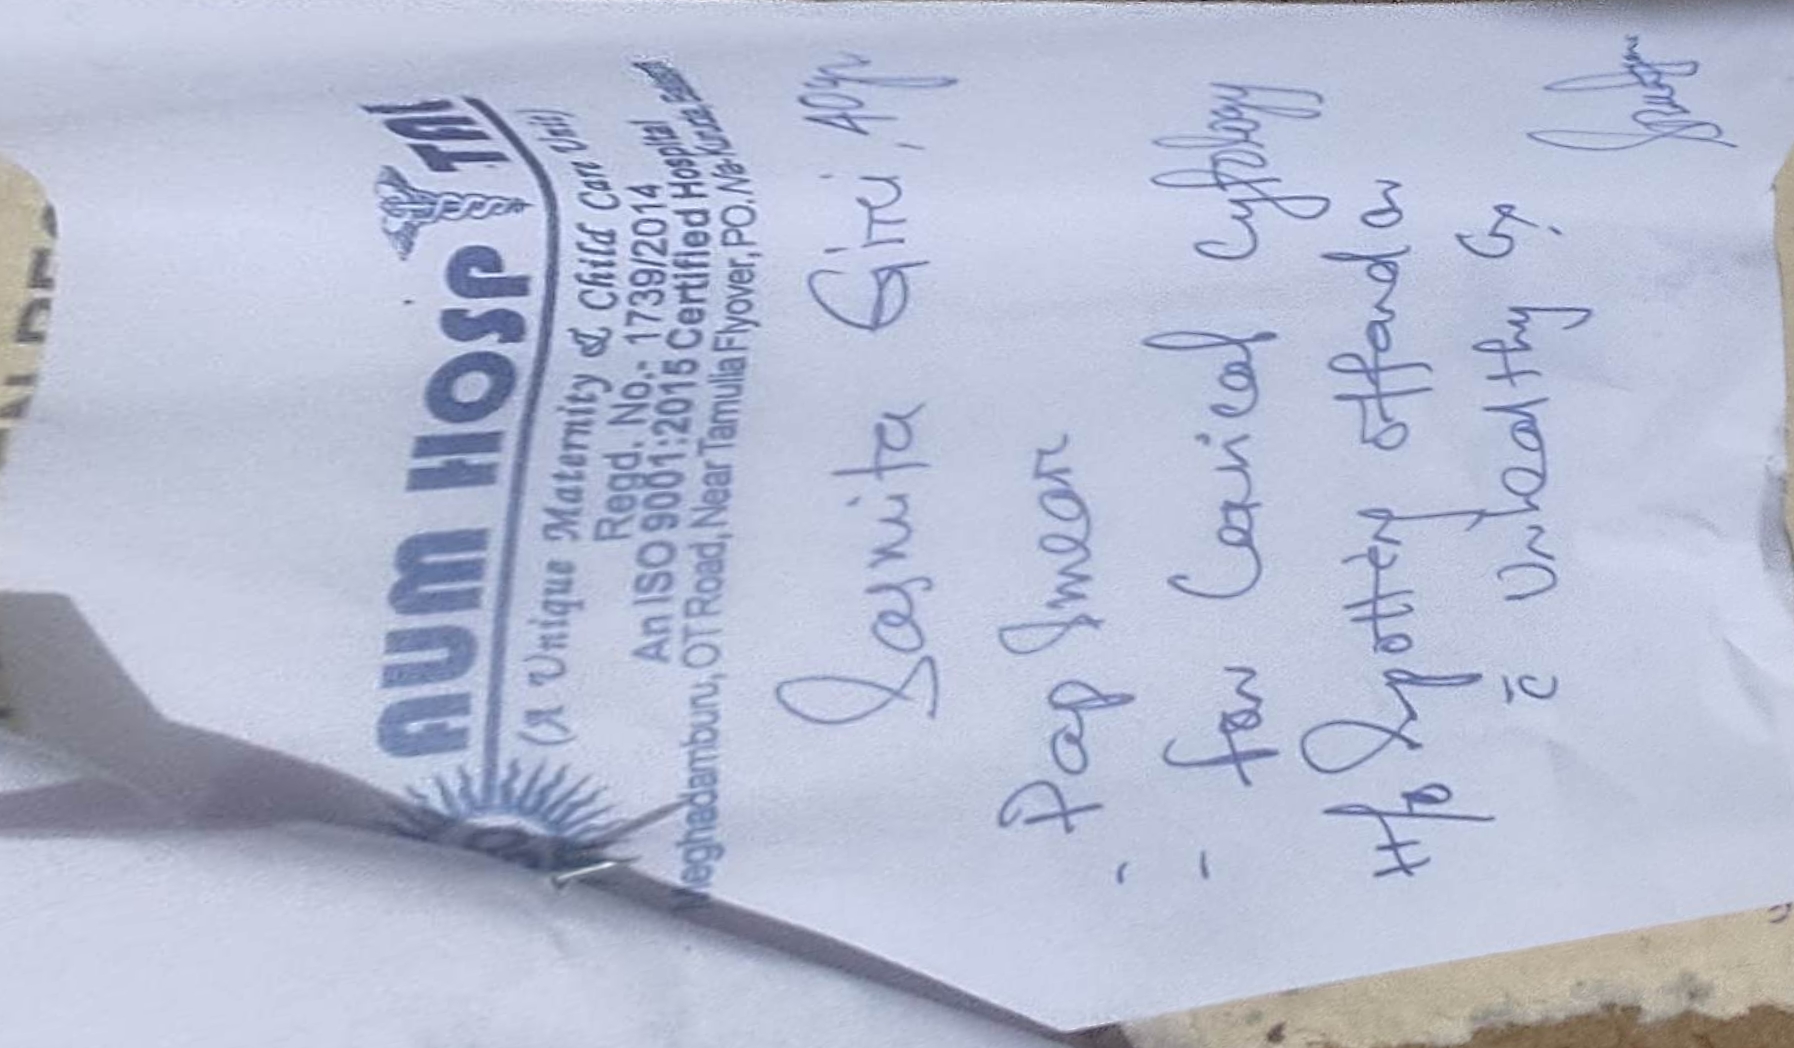 AUM HOSPITAL
(A Unique Maternity & Child Care Unit)
Regd. No.- 1739/2014
An ISO 9001:2015 Certified Hospital
Meghadamburu, OT Road, Near Tamulia Flyover, PO.
Sasmita Giri, 40yr
- Pap Smear
- for Cervical Cytology
H/o Spotting off and on
c̄ Unhealthy Cx.